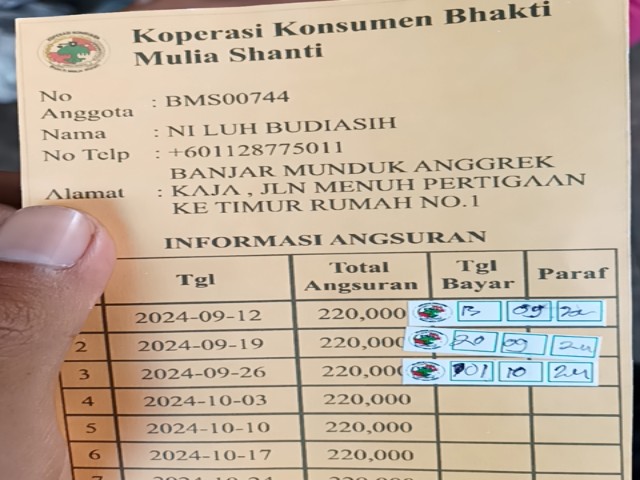 Koperasi Konsumen Bhakti
Mulia Shanti
No
Anggota : BMS00744
Nama : NI LUH BUDIASIH
No Telp : +601128775011
BANJAR MUNDUK ANGGREK
Alamat : KAJA , JLN MENUH PERTIGAAN
KE TIMUR RUMAH NO.1
INFORMASI ANGSURAN
Tgl Total Angsuran Tgl Bayar Paraf
2024-09-12 220,000 13 09 24
2 2024-09-19 220,000 20 09 24
3 2024-09-26 220,000 01 10 24
4 2024-10-03 220,000
5 2024-10-10 220,000
6 2024-10-17 220,000